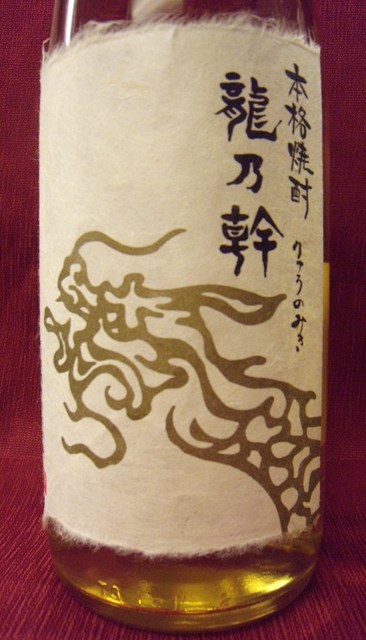 本格焼酎
龍乃幹
りゅうのみき